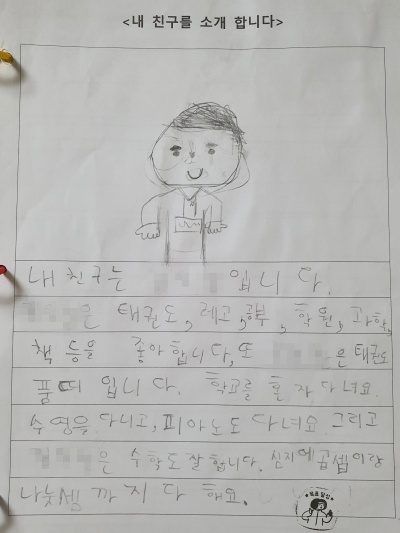 <내 친구를 소개 합니다>
내 친구는 입니다.
은 태권도, 레고, 공부, 학원, 과학,
책 등을 좋아합니다, 또 은 태권도
품띠 입니다. 학교를 혼자 다녀요.
수영을 다니고, 피아노도 다녀요. 그리고
은 수학도 잘 합니다. 심지에 곱셈이랑
나눗셈 까지 다 해요.